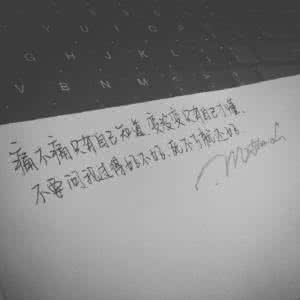 Y U I
G H J K L
V B N M
痛不痛只有自己知道,变没变只有自己才懂.
不要问我过得好不好,死不了就还好.